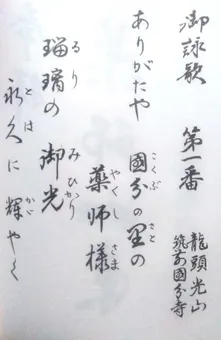 御詠歌　第一番
龍頭光山
筑前國分寺
ありがたや
國分の里の
こくぶ　さと
薬師様
やくし　さま
瑠璃の御光
るり　みひかり
永久に輝やく
とは　かが